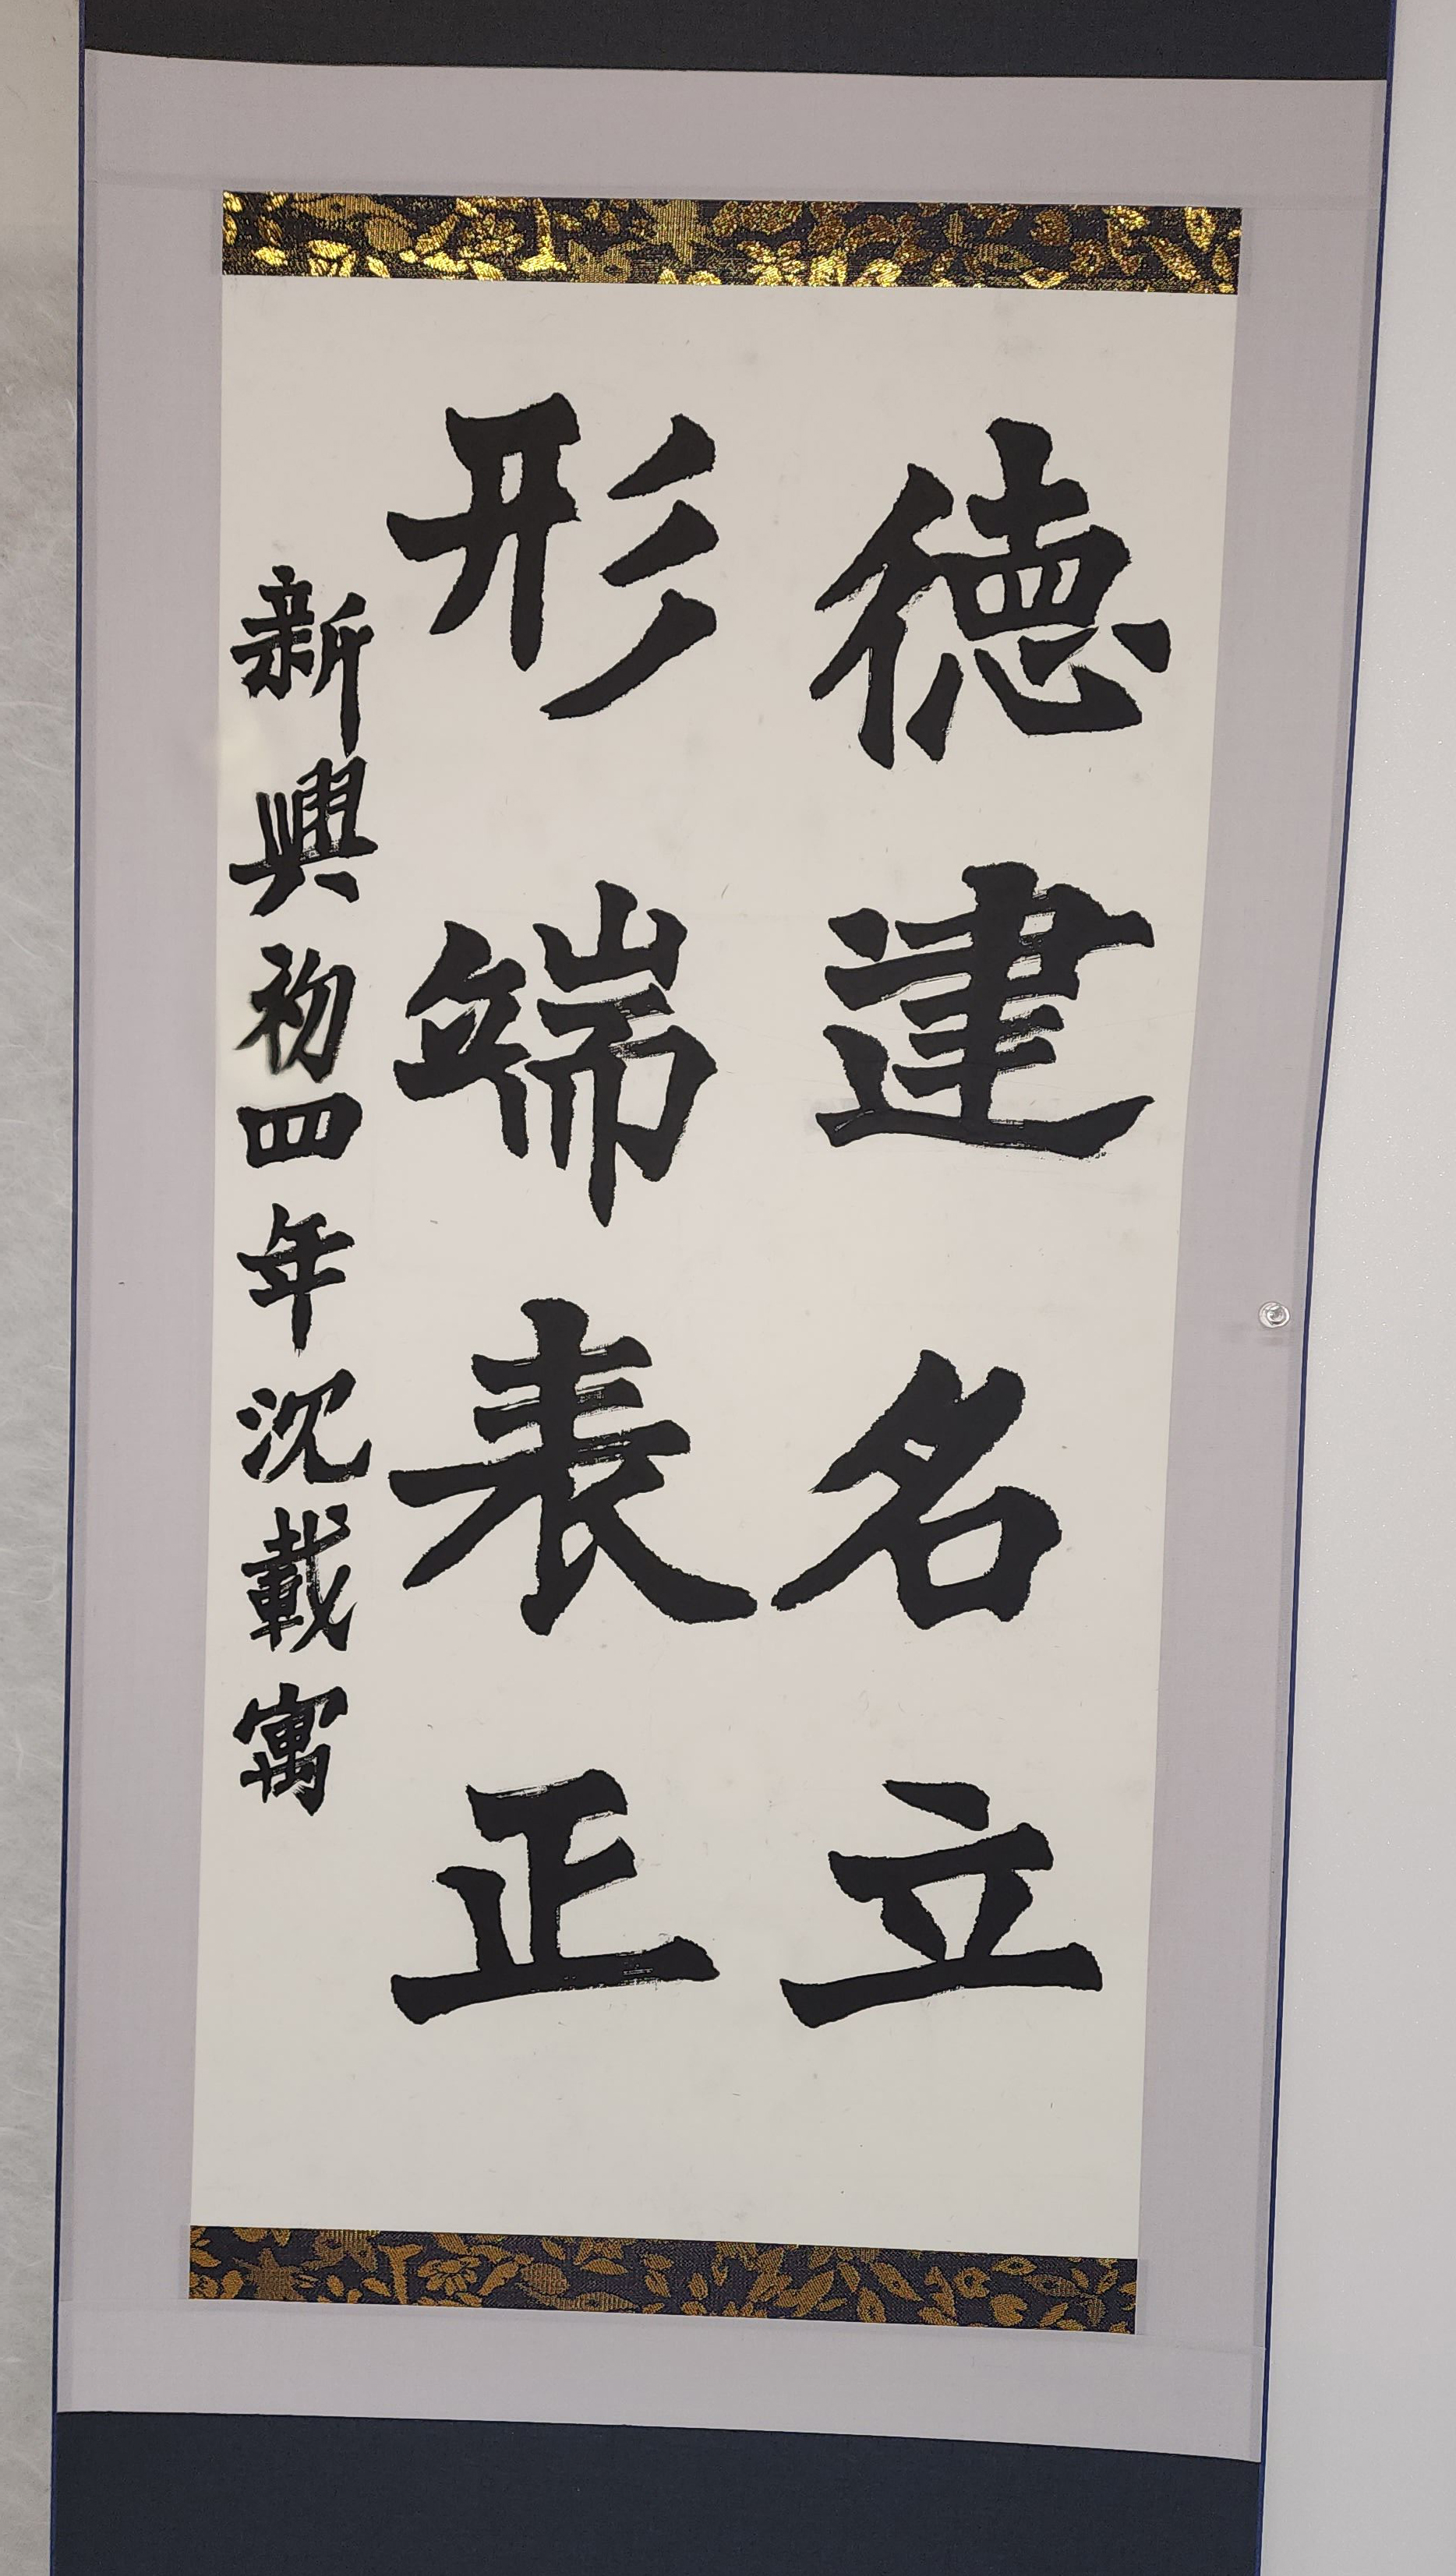 德建名立
形端表正
新興初四年沈載寓